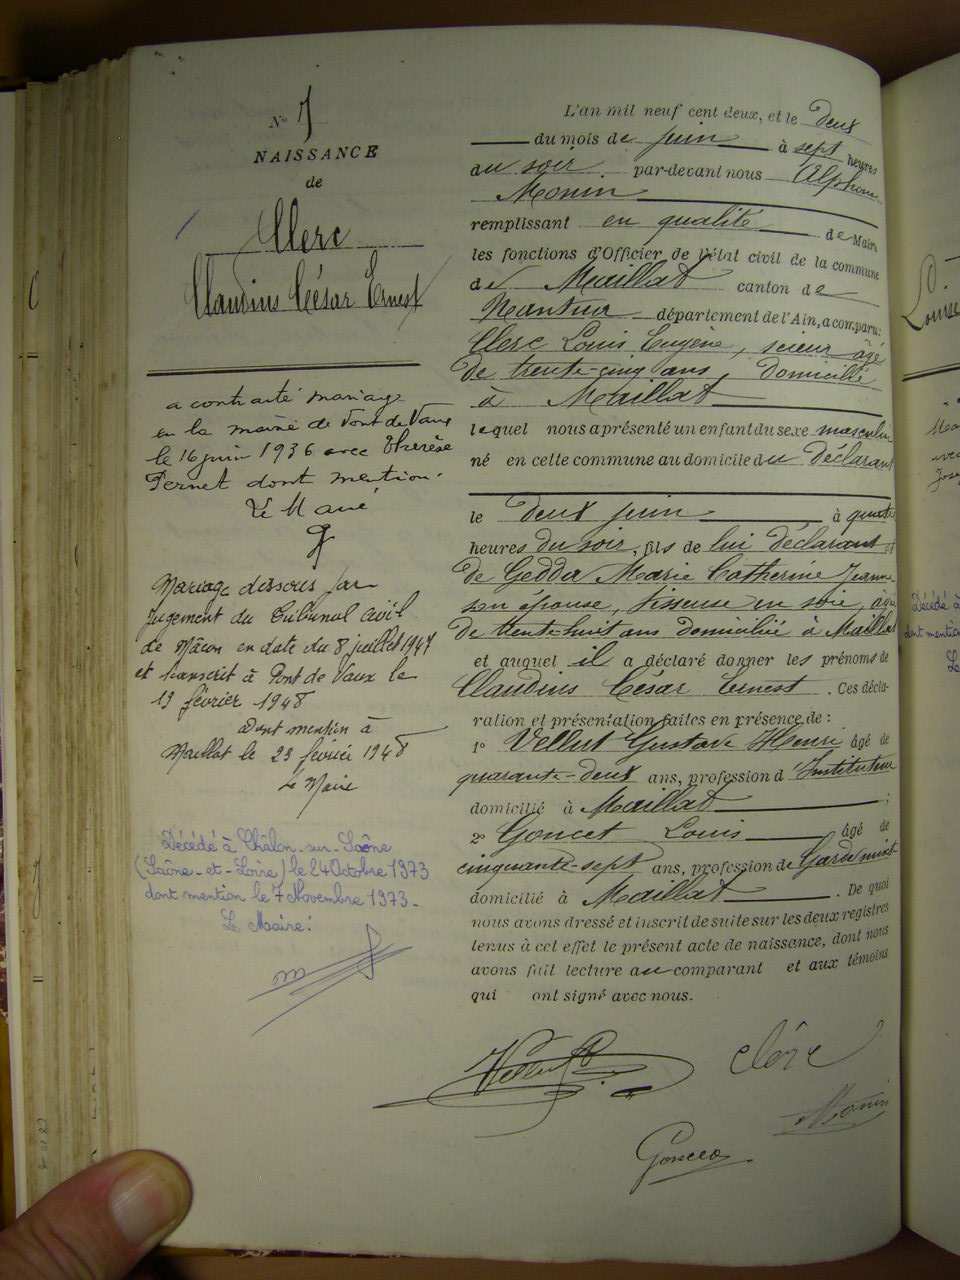 N°
NAISSANCE
de
Clerc
Claudius César Ernest
a contracté mariage
en la mairie de Pont de Vaux
le 16 juin 1936 avec Thérèse
Pernet dont mention.
Le Maire
Mariage dissous par
Jugement du Tribunal Civil
de Mâcon en date du 8 juillet 1947
et transcrit à Pont de Vaux le
13 février 1948
Dont mention à
Maillat le 23 février 1948
Le Maire
Décédé à Châlon-sur-Saône
(Saône-et-Loire) le 24 Octobre 1973
dont mention le 7 Novembre 1973.
Le Maire:
L'an mil neuf cent deux, et le Deux
du mois de juin à sept heures
au soir par-devant nous Alphonse
Monin
remplissant en qualité de Maire
les fonctions d'Officier de l'état civil de la commune
de Maillat canton de
Nantua département de l'Ain, a comparu:
Clerc Louis Eugène, scieur âgé
de trente-cinq ans, domicilié
à Maillat
lequel nous a présenté un enfant du sexe masculin
né en cette commune au domicile du déclarant
le deux juin à quatre
heures du soir, fils de lui déclarant et
de Gedda Marie Catherine Jeanne
son épouse, tisseuse en soie, âgée
de trente-huit ans domiciliée à Maillat
et auquel il a déclaré donner les prénoms de
Claudius César Ernest. Ces décla-
ration et présentation faites en présence de:
1° Vellut Gustave Henri âgé de
quarante-deux ans, profession d'Instituteur
domicilié à Maillat;
2° Goncet Louis âgé de
cinquante-sept ans, profession de
domicilié à Maillat. De quoi
nous avons dressé et inscrit de suite sur les deux registres
tenus à cet effet le présent acte de naissance, dont nous
avons fait lecture au comparant et aux témoins
qui ont signé avec nous.
Vellut
Clerc
Monin
Louise
Décédé à
dont mention